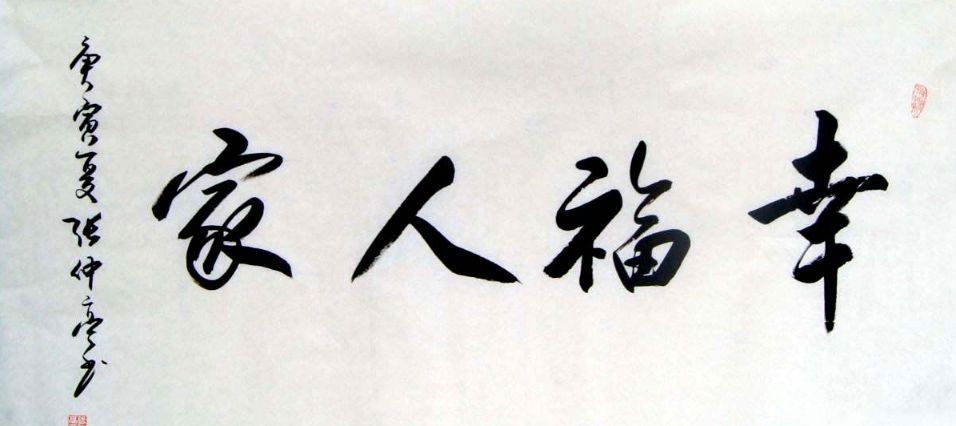 幸福人家
庚寅夏张仲亭书